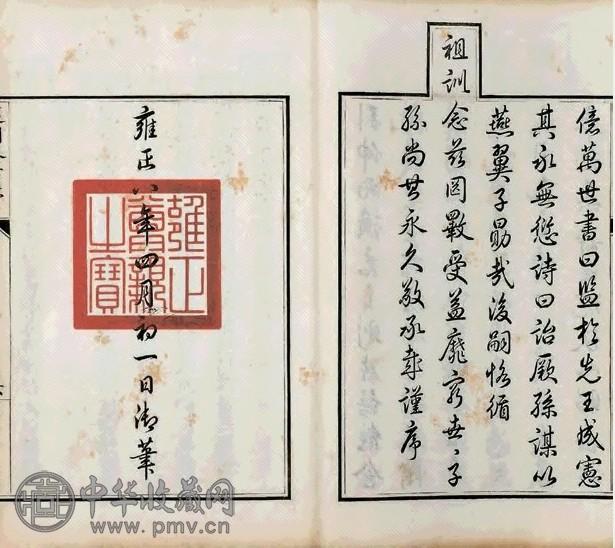 億萬世書曰監於先王成憲
其永無愆詩曰詒厥孫謀以
燕翼子勗哉後嗣恪循
祖訓念茲罔斁受益靡窮世〻子
孫尚其永久敬承哉謹序
雍正八年四月初一日御筆
雍正
尊親
之寶
中华收藏网
www.pmv.cn